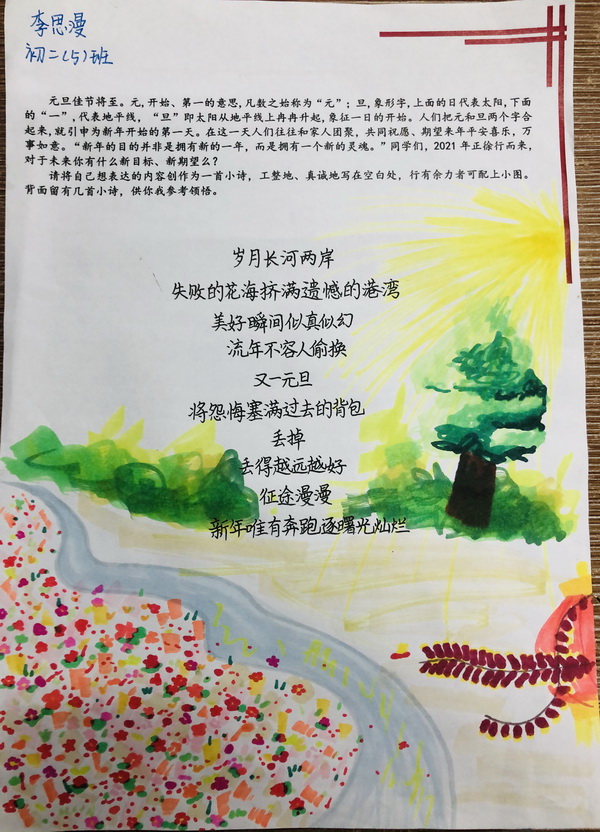 李思漫
初二(5)班
元旦佳节将至。元,开始、第一的意思,凡数之始称为“元”;旦,象形字,上面的日代表太阳,下面
的“一”,代表地平线,“旦”即太阳从地平线上冉冉升起,象征一日的开始。人们把元和旦两个字合
起来,就引申为新年开始的第一天。在这一天人们往往和家人团聚,共同祝愿、期望来年平安喜乐,万
事如意。“新年的目的并非是拥有新的一年,而是拥有一个新的灵魂。”同学们,2021年正徐行而来,
对于未来你有什么新目标、新期望么?
请将自己想表达的内容创作为一首小诗,工整地、真诚地写在空白处,行有余力者可配上小图。
背面留有几首小诗,供你我参考领悟。
岁月长河两岸
失败的花海挤满遗憾的港湾
美好瞬间似真似幻
流年不容人偷换
又一元旦
将怨悔塞满过去的背包
丢掉
丢得越远越好
征途漫漫
新年唯有奔跑逐曙光灿烂